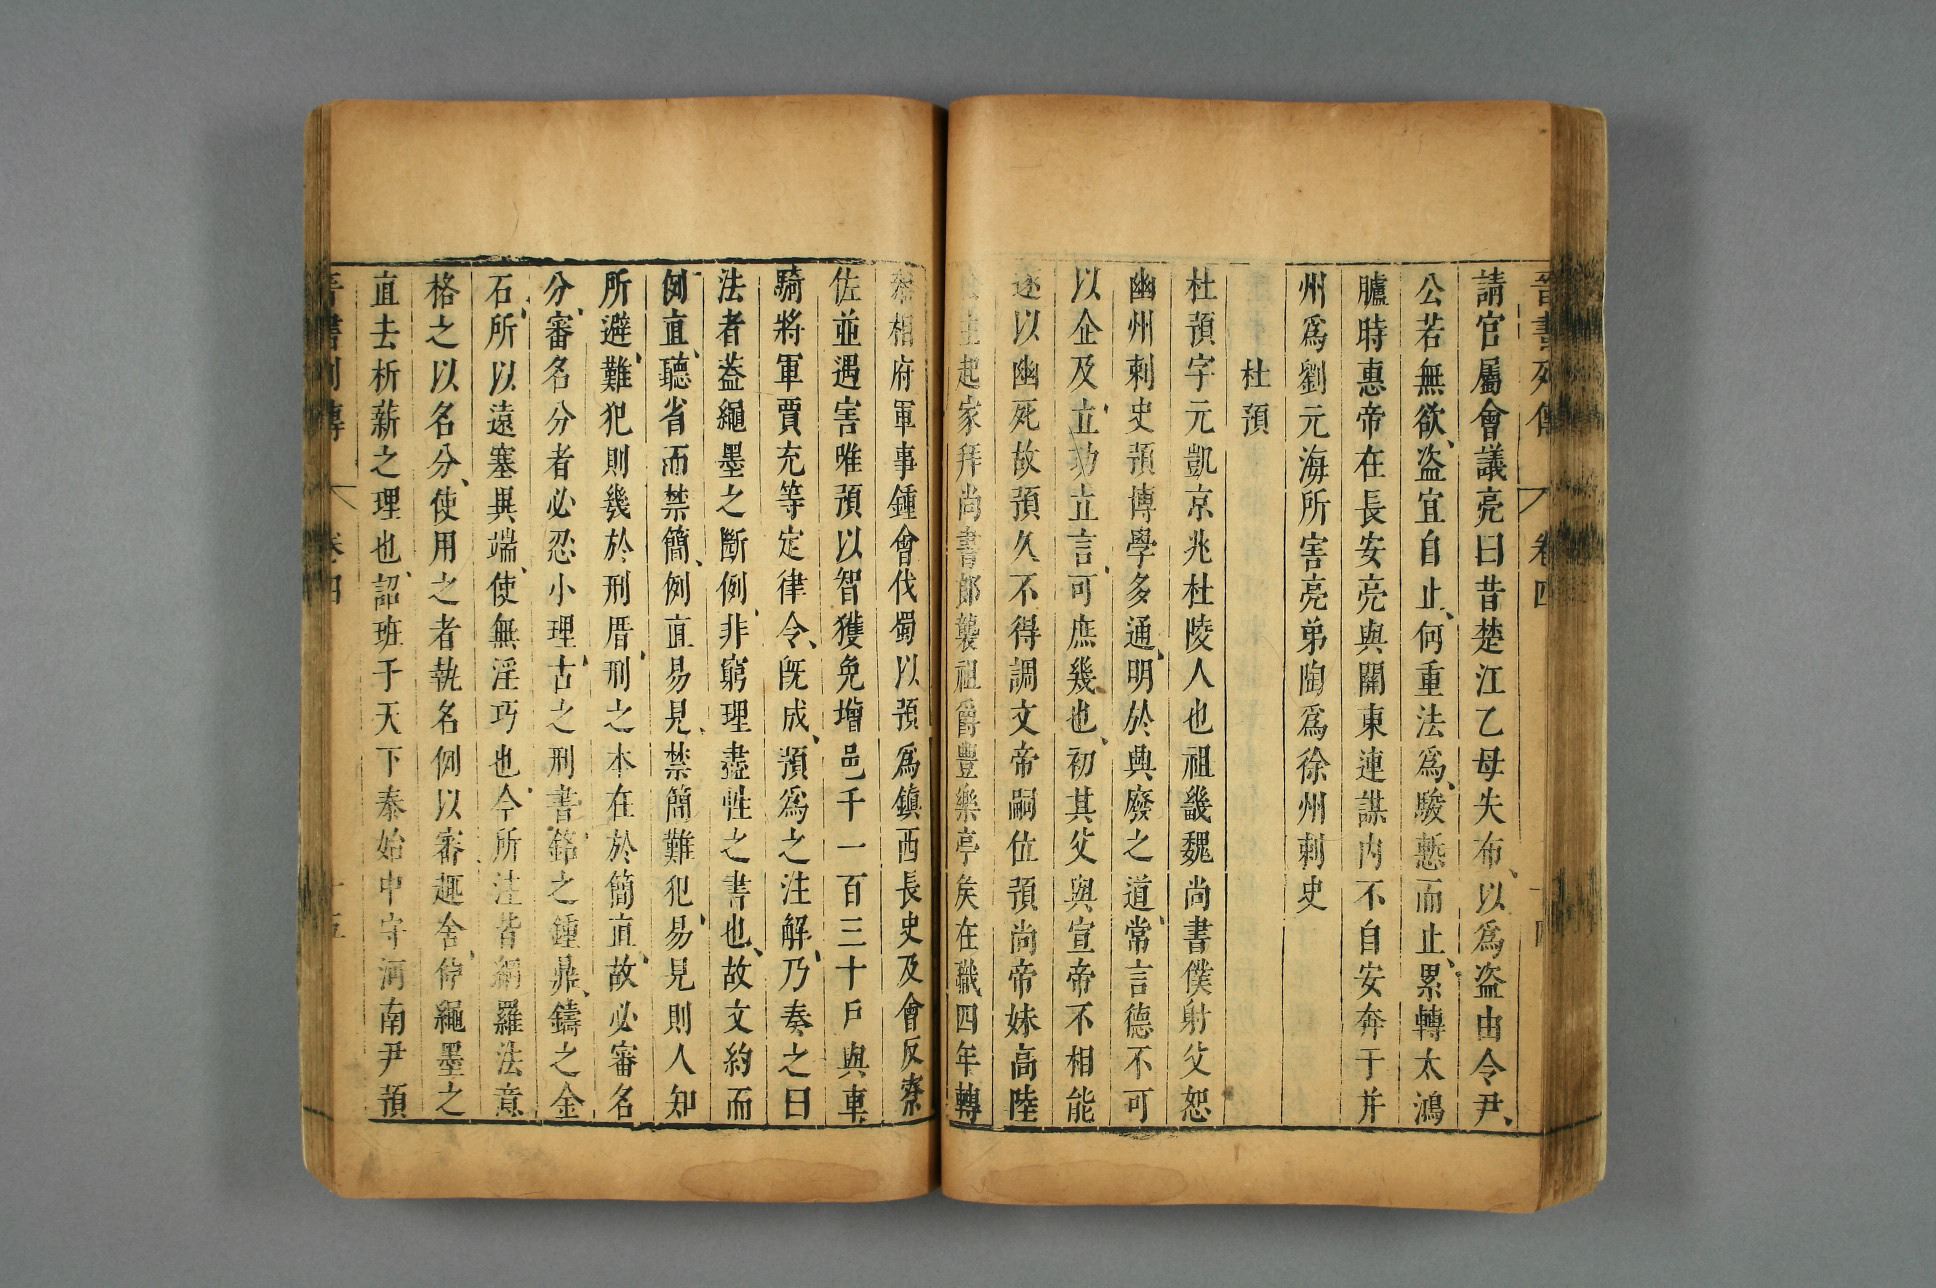 晉書列傳 卷四
請官屬會議亮曰昔楚江乙母失布、以爲盜由令尹、
公若無欲、盜宜自止、何重法爲、駿慙而止、累轉太鴻
臚時惠帝在長安亮與關東連謀内不自安奔于并
州爲劉元海所害亮弟陶爲徐州刺史
杜預
杜預字元凱京兆杜陵人也祖畿魏尚書僕射父恕
幽州刺史預博學多通、明於興廢之道、常言德不可
以企及、立功立言、可庶幾也、初其父與宣帝不相能
遂以幽死故預久不得調文帝嗣位預尚帝妹高陸
公主起家拜尚書郎襲祖爵豐樂亭矦在職四年轉
叅相府軍事鍾會伐蜀以預爲鎮西長史及會反寮
佐並遇害唯預以智獲免增邑千一百三十戶與車
騎將軍賈充等定律令、既成、預爲之注解、乃奏之曰
法者葢繩墨之斷例、非窮理盡性之書也、故文約而
例直、聽省而禁簡、例直易見、禁簡難犯、易見則人知
所避、難犯則幾於刑厝、刑之本在於簡直、故必審名
分、審名分者必忍小理、古之刑書、銘之鍾鼎、鑄之金
石、所以遠塞異端、使無淫巧也、今所注皆網羅法意
格之以名分、使用之者執名例以審趣舍、伸繩墨之
直去析薪之理也、詔班于天下泰始中守河南尹預
晉書列傳 卷四 十五